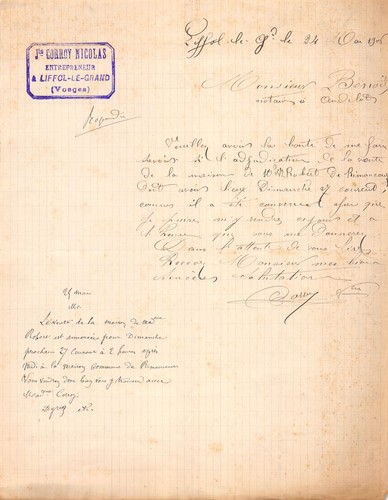 Jh CORROY NICOLAS
ENTREPRENEUR
A LIFFOL-LE-GRAND
(Vosges)
Liffol-le-Gd le 24 Mai
Répondu
Monsieur Benoit
notaire à Andelot
Veuillez avoir la bonté de me faire
savoir si l'adjudication de la vente
de la maison de Mr Robert de Rimaucourt
doit avoir lieux Dimanche 27 courent
comme il a été convenu afin que
je puisse m'y rendre au jour et a
l'heure que vous me donnerez
Dans l'attente de vous lire
Recevez Monsieur mes
sincères salutation
Corroy
25 mai
Mr
La vente de la maison de
Robert est annoncée pour Dimanche
prochain 27 courant à 2 heures après
midi à la maison commune de Rimaucourt
Vous voudrez bien vous y trouver avec
Corroy